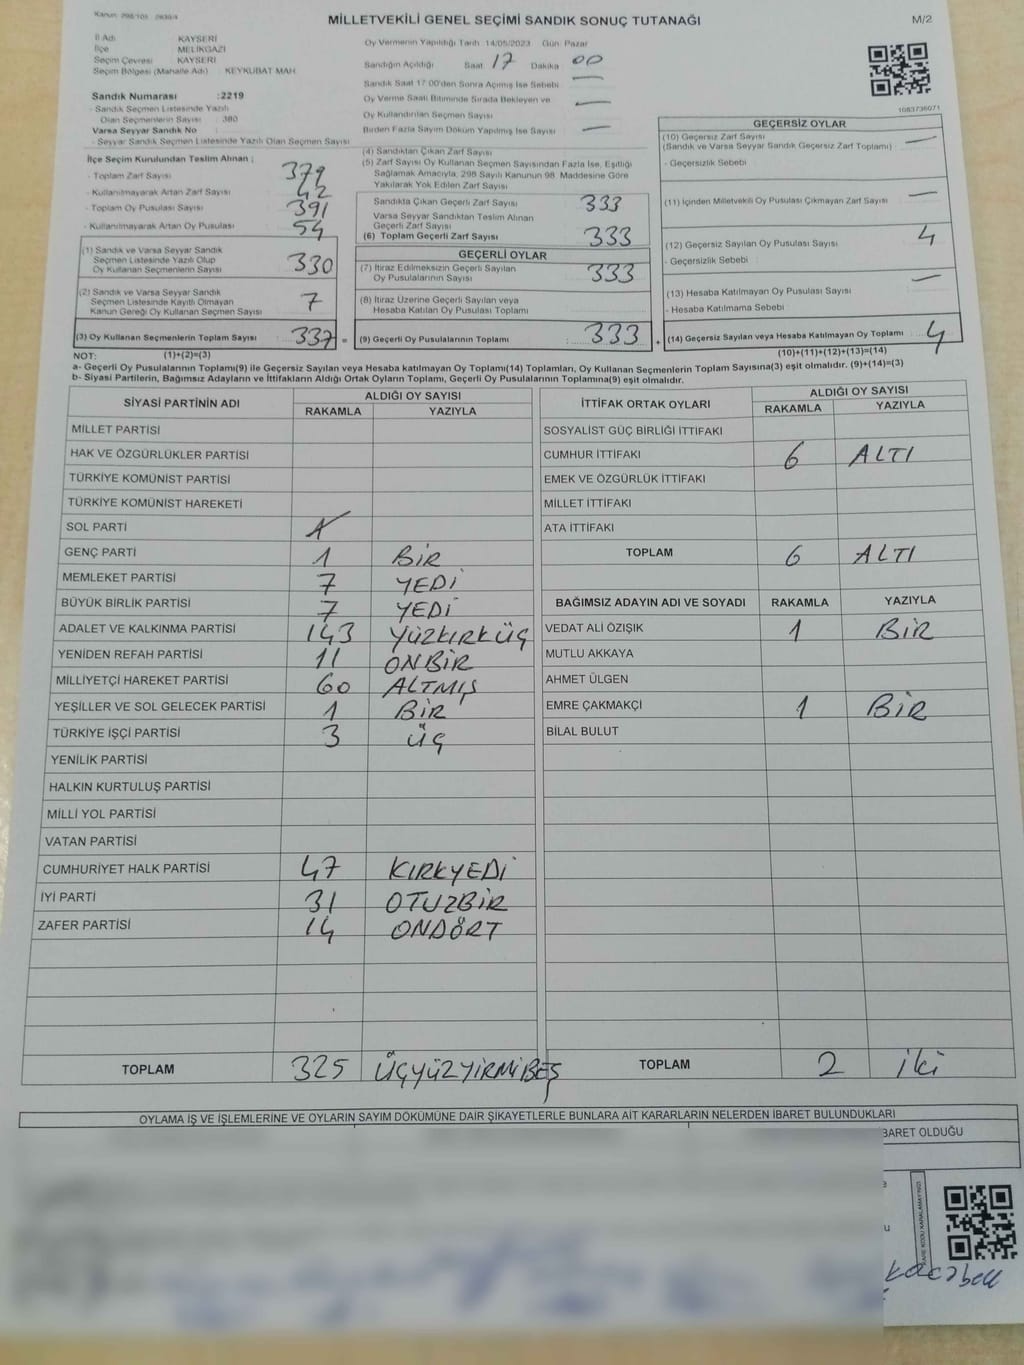 MİLLETVEKİLİ GENEL SEÇİMİ SANDIK SONUÇ TUTANAĞI
M/2
İl Adı KAYSERİ
İlçe MELİKGAZİ
Seçim Çevresi KAYSERİ
Seçim Bölgesi (Mahalle Adı) : KEYKUBAT MAH
Sandık Numarası :2219
- Sandık Seçmen Listesinde Yazılı
Olan Seçmenlerin Sayısı : 380
Varsa Seyyar Sandık No
- Seyyar Sandık Seçmen Listesinde Yazılı Olan Seçmen Sayısı
Oy Vermenin Yapıldığı Tarih 14/05/2023 Gün Pazar
Sandığın Açıldığı Saat 17 Dakika 00
Sandık Saat 17:00'den Sonra Açılmış İse Sebebi —
Oy Verme Saati Bitiminde Sırada Bekleyen ve —
Oy Kullandırılan Seçmen Sayısı
Birden Fazla Sayım Döküm Yapılmış İse Sayısı —
1083736071
İlçe Seçim Kurulundan Teslim Alınan ;
- Toplam Zarf Sayısı 379
- Kullanılmayarak Artan Zarf Sayısı 42
- Toplam Oy Pusulası Sayısı 391
- Kullanılmayarak Artan Oy Pusulası 54
(1) Sandık ve Varsa Seyyar Sandık
Seçmen Listesinde Yazılı Olup
Oy Kullanan Seçmenlerin Sayısı 330
(2) Sandık ve Varsa Seyyar Sandık
Seçmen Listesinde Kayıtlı Olmayan
Kanun Gereği Oy Kullanan Seçmen Sayısı 7
(3) Oy Kullanan Seçmenlerin Toplam Sayısı 337 =
(4) Sandıktan Çıkan Zarf Sayısı
(5) Zarf Sayısı Oy Kullanan Seçmen Sayısından Fazla İse, Eşitliği
Sağlamak Amacıyla, 298 Sayılı Kanunun 98. Maddesine Göre
Yakılarak Yok Edilen Zarf Sayısı
Sandıkta Çıkan Geçerli Zarf Sayısı 333
Varsa Seyyar Sandıktan Teslim Alınan
Geçerli Zarf Sayısı
(6) Toplam Geçerli Zarf Sayısı 333
GEÇERLİ OYLAR
(7) İtiraz Edilmeksizin Geçerli Sayılan
Oy Pusulalarının Sayısı 333
(8) İtiraz Üzerine Geçerli Sayılan veya
Hesaba Katılan Oy Pusulası Toplamı
(9) Geçerli Oy Pusulalarının Toplamı 333 +
GEÇERSİZ OYLAR
(10) Geçersiz Zarf Sayısı —
(Sandık ve Varsa Seyyar Sandık Geçersiz Zarf Toplamı)
- Geçersizlik Sebebi
(11) İçinden Milletvekili Oy Pusulası Çıkmayan Zarf Sayısı —
(12) Geçersiz Sayılan Oy Pusulası Sayısı 4
- Geçersizlik Sebebi :
(13) Hesaba Katılmayan Oy Pusulası Sayısı —
- Hesaba Katılmama Sebebi :
(14) Geçersiz Sayılan veya Hesaba Katılmayan Oy Toplamı 4
NOT: (1)+(2)=(3)
(10)+(11)+(12)+(13)=(14)
a- Geçerli Oy Pusulalarının Toplamı(9) ile Geçersiz Sayılan veya Hesaba katılmayan Oy Toplamı(14) Toplamları, Oy Kullanan Seçmenlerin Toplam Sayısına(3) eşit olmalıdır. (9)+(14)=(3)
b- Siyasi Partilerin, Bağımsız Adayların ve İttifakların Aldığı Ortak Oyların Toplamı, Geçerli Oy Pusulalarının Toplamına(9) eşit olmalıdır.
SİYASİ PARTİNİN ADI
ALDIĞI OY SAYISI
RAKAMLA YAZIYLA
MİLLET PARTİSİ
HAK VE ÖZGÜRLÜKLER PARTİSİ
TÜRKİYE KOMÜNİST PARTİSİ
TÜRKİYE KOMÜNİST HAREKETİ
SOL PARTİ
GENÇ PARTİ 1 BİR
MEMLEKET PARTİSİ 7 YEDİ
BÜYÜK BİRLİK PARTİSİ 7 YEDİ
ADALET VE KALKINMA PARTİSİ 143 YÜZKIRKÜÇ
YENİDEN REFAH PARTİSİ 11 ONBİR
MİLLİYETÇİ HAREKET PARTİSİ 60 ALTMIŞ
YEŞİLLER VE SOL GELECEK PARTİSİ 1 BİR
TÜRKİYE İŞÇİ PARTİSİ 3 ÜÇ
YENİLİK PARTİSİ
HALKIN KURTULUŞ PARTİSİ
MİLLİ YOL PARTİSİ
VATAN PARTİSİ
CUMHURİYET HALK PARTİSİ 47 KIRKYEDİ
İYİ PARTİ 31 OTUZBİR
ZAFER PARTİSİ 14 ONDÖRT
TOPLAM 325 ÜÇYÜZYİRMİBEŞ
İTTİFAK ORTAK OYLARI
ALDIĞI OY SAYISI
RAKAMLA YAZIYLA
SOSYALİST GÜÇ BİRLİĞİ İTTİFAKI
CUMHUR İTTİFAKI 6 ALTI
EMEK VE ÖZGÜRLÜK İTTİFAKI
MİLLET İTTİFAKI
ATA İTTİFAKI
TOPLAM 6 ALTI
BAĞIMSIZ ADAYIN ADI VE SOYADI RAKAMLA YAZIYLA
VEDAT ALİ ÖZIŞIK 1 BİR
MUTLU AKKAYA
AHMET ÜLGEN
EMRE ÇAKMAKÇİ 1 BİR
BİLAL BULUT
TOPLAM 2 İki
OYLAMA İŞ VE İŞLEMLERİNE VE OYLARIN SAYIM DÖKÜMÜNE DAİR ŞİKAYETLERLE BUNLARA AİT KARARLARIN NELERDEN İBARET BULUNDUKLARI
BARET OLDUĞU